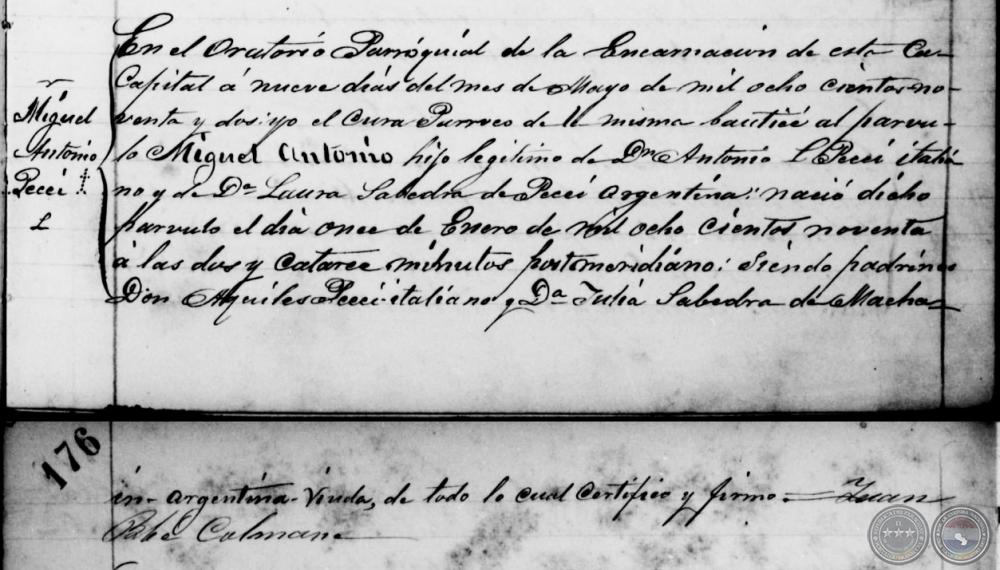 En el Oratorio Parroquial de la Encarnacion de esta Ca-
Capital á nueve dias del mes de Mayo de mil ocho cientos no-
venta y dos: yo el Cura Parroco de la misma bauticé al parvu-
lo Miguel Antonio hijo legitimo de Dn Antonio L Pecci italia
no y de Da Laura Sabedra de Pecci Argentina: nació dicho
parvulo el dia once de Enero de mil ocho cientos noventa
á las dos y catarce minutos postmeridiano: Siendo padrinos
Don Aquiles Pecci italiano y Da Julia Sabedra de Macha-
Miguel
Antonio
Pecci
L
176
in- argentina- Viuda, de todo lo cual certifico y firmo- Juan
Colman